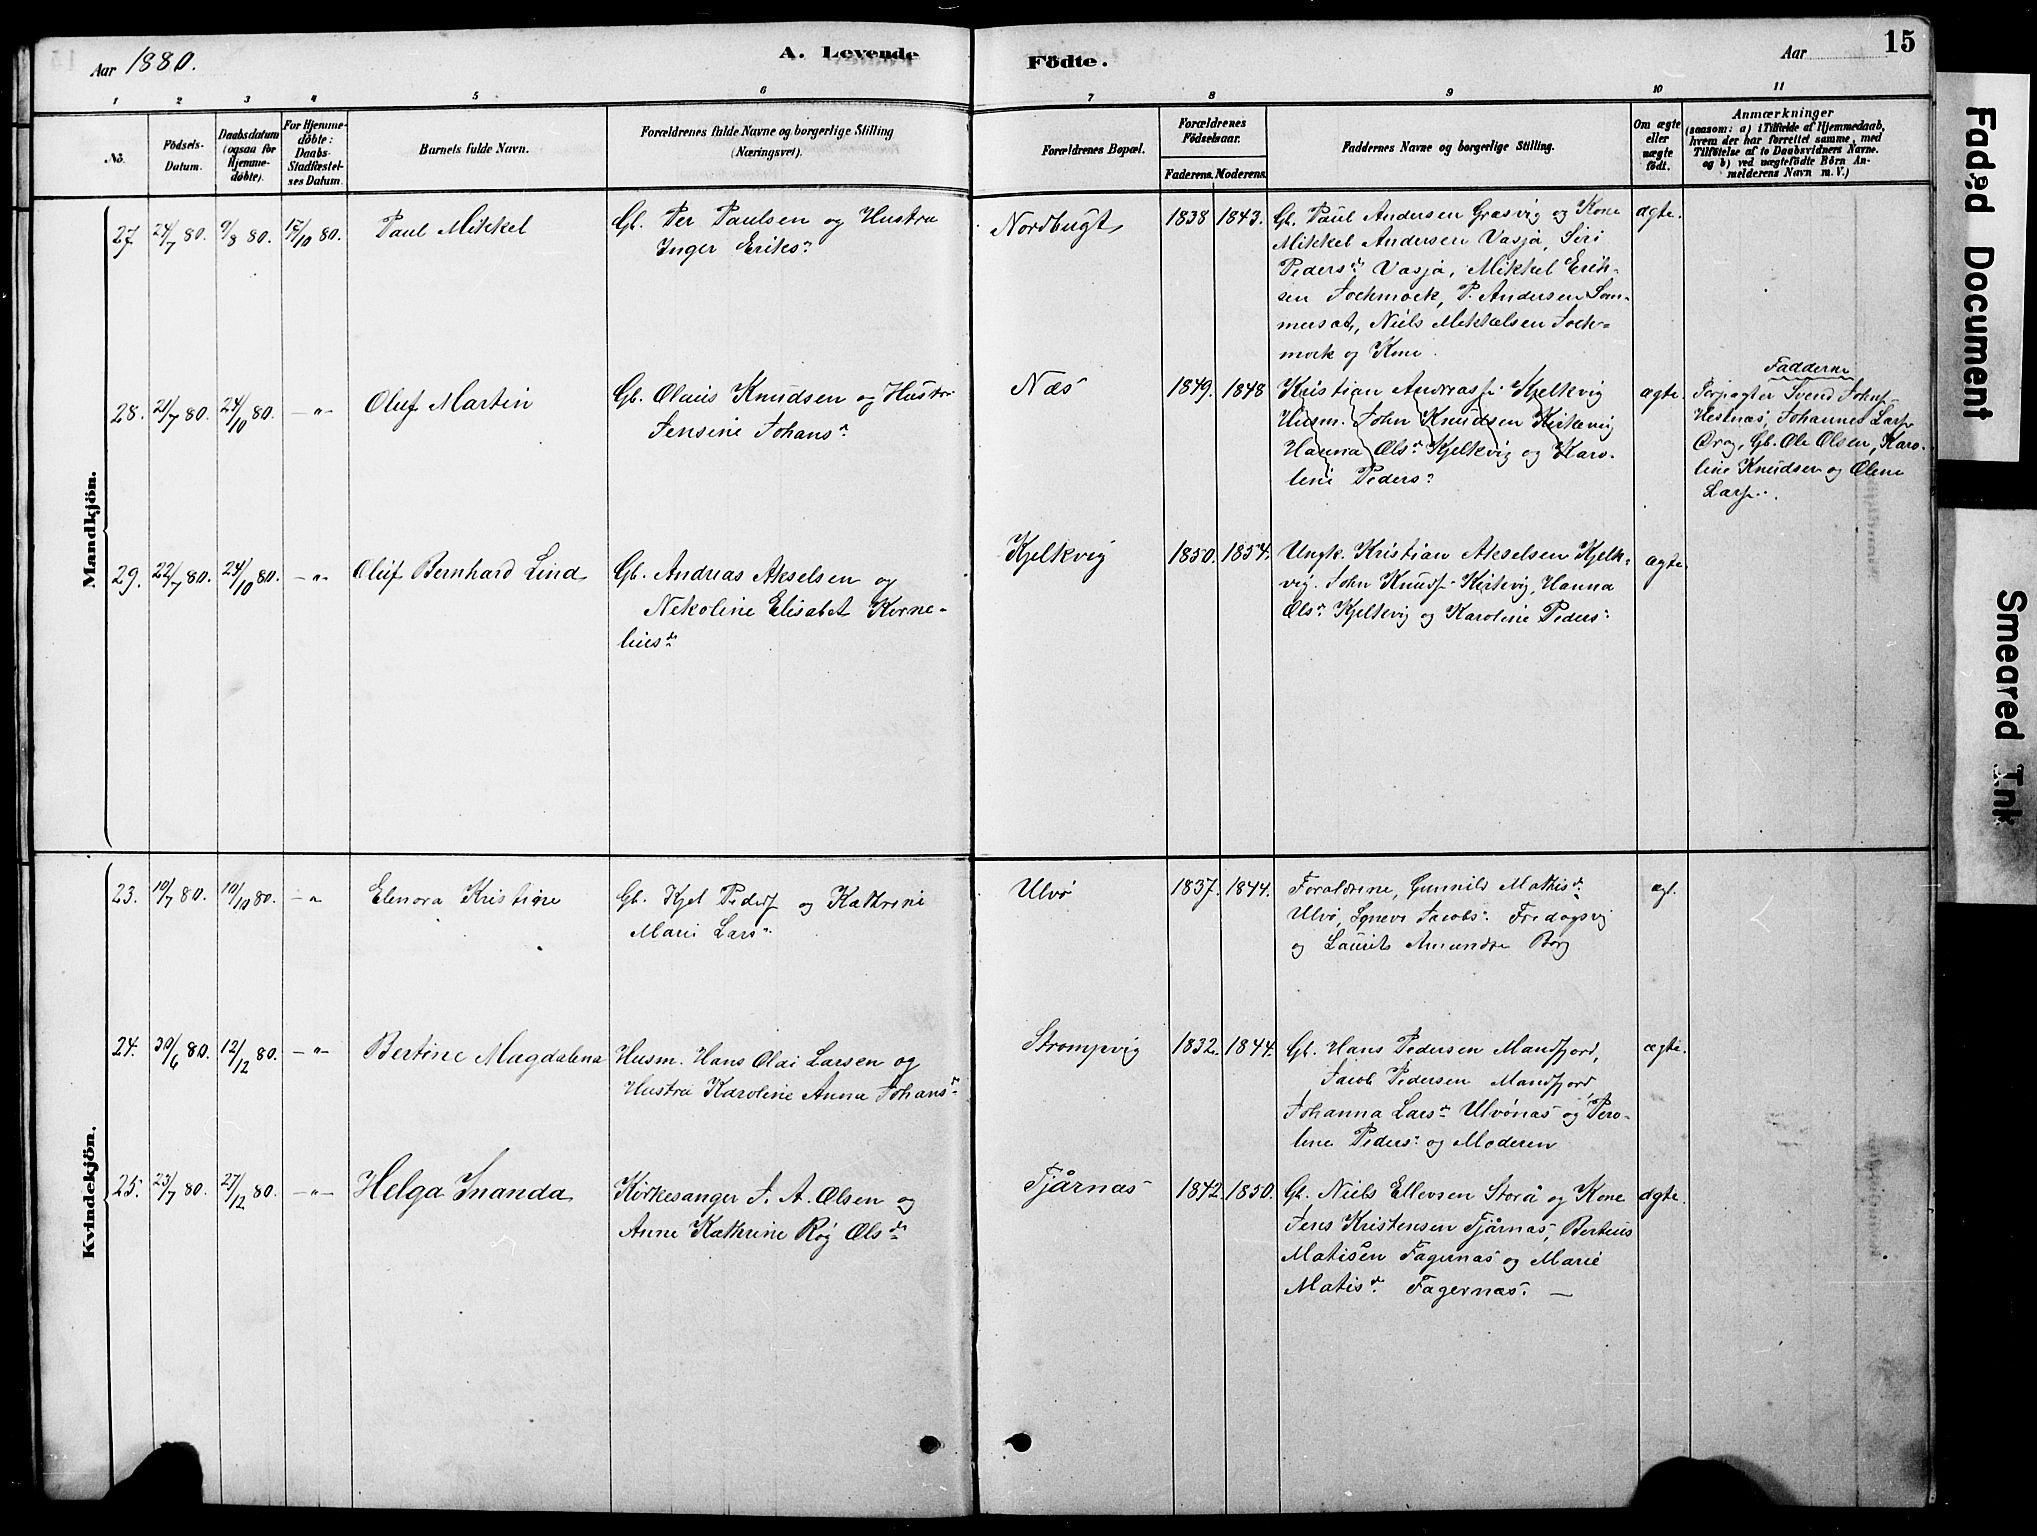 Aar 1880.
A. Levende
Födte.
Aar
15
1 2 3 4 5 6 7 8 9 10 11
No.
Födsels-
Datum.
Daabsdatum
(ogsaa for
Hjemme-
døbte).
For Hjemme-
døbte:
Daabs-
Stadfæstel-
ses Datum.
Barnets fulde Navn.
Forældrenes fulde Navne og borgerlige Stilling
(Næringsvei).
Forældrenes Bopæl.
Forældrenes
Födselsaar.
Faderens. Moderens.
Faddernes Navne og borgerlige Stilling.
Om ægte
eller
uægte
födt.
Anmærkninger
(saasom: a) i Tilfælde af Hjemmedaab,
hvem der har forrettet samme, med
Tilföielse af to Daabsvidners Navne.
og b) ved uægtefödte Börn An-
melderens Navn m. V.)
Mandkjön.
27. 24/7 80. 9/8 80. 17/10 80.
Paul Mikkel
Gb. Per Paulsen og Hustru
Inger Eriksdr
Nordbugt
1838 1843.
Gb. Paul Andersen Grasvig og Kone
Mikkel Andersen Vasja, Siri
Pedersdr Vasja, Mikkel Erik-
sen Jockmock, P. Andersen Som-
mersæt, Niels Mikkelsen Jock-
mock og Kone.
ægte.
28. 21/7 80. 24/10 80. -"-
Oluf Martin
Gb. Olaus Knudsen og Hustru
Jensine Johansdr
Næs
1849. 1848
Kristian Andreass. Kjelkvig
Husm. John Knudsen Kirkevig
Hanna Olsdr Kjelkvig og Karo-
line Pedersdr
ægte.
Fadderne
Forpagter Svend Johns.
Hestnæs, Johannes Lars.
Drag, Gb. Ole Olsen, Karo-
line Knudsen og Olene
Lars..
29. 22/7 80. 24/10 80. -"-
Oluf Bernhard Lind
Gb. Andreas Akselsen og
Nekoline Elisabet Korne-
liusdr
Kjelkvig
1850. 1854.
Ungk. Kristian Akselsen Kjelk-
vig. John Knuds. Kirkevig, Hanna
Olsdr Kjelkvig og Karoline Pedersdr
ægte.
Kvindekjön.
23. 10/7 80. 10/10 80. -"
Elenora Kristine
Gb. Kjel Peders. og Kathrine
Marie Larsdr
Ulvø
1837. 1844.
Forældrene, Gunnild Mathisdr
Ulvø, Synneve Jacobsdr Fredagsvig
og Laurits Amundse Borg
ægt.
24. 30/6 80. 12/12 80. -"-
Bertine Magdalena
Husm. Hans Olai Larsen og
Hustru Karoline Anna Johansdr
Strompvig
1832. 1844.
Gb. Hans Pedersen Mandfjord,
Jacob Pedersen Mandfjord
Johanna Larsdr Ulvönæs og Pero-
line Pedersdr og Moderen
ægte.
25. 23/7 80. 27/12 80. -"-
Helga Inanda
Kirkesanger J. A. Olsen og
Anne Kathrine Røg Olsdr
Tjårnæs
1842. 1850.
Gb. Niels Ellevsen Storå og Kone
Jens Kristensen Tjårnæs, Berteus
Matisen Fagernæs og Marie
Matisdr Fagernæs. —
ægte.
Faded Document
Smeared Ink